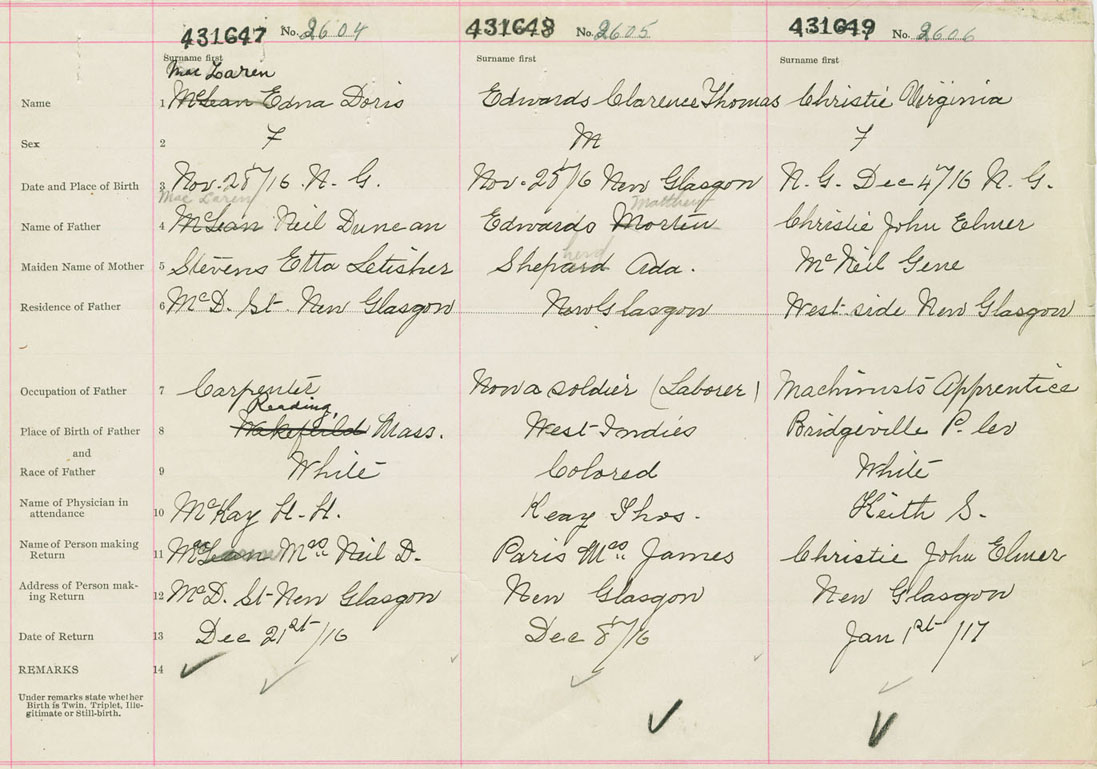 431647 No. 2604 431648 No. 2605 431649 No. 2606
Surname first Surname first Surname first
Mac Laren
Name 1 McLean Edna Doris Edwards Clarence Thomas Christie Virginia
Sex 2 F M F
Date and Place of Birth 3 Nov. 28/16 N. G. Nov. 28/16 New Glasgow N. G. Dec 4/16 N. G.
Mac Laren Matthew
Name of Father 4 McLean Neil Duncan Edwards Morton Christie John Elmer
herd
Maiden Name of Mother 5 Stevens Etta Letisher Shepard Ada. McNeil Gene
Residence of Father 6 McD. St. New Glasgow New Glasgow West side New Glasgow
Occupation of Father 7 Carpenter Now a soldier (Laborer) Machinists Apprentice
Reading,
Place of Birth of Father 8 Wakefield Mass. West Indies Bridgeville P.
and
Race of Father 9 White Colored White
Name of Physician in
attendance 10 McKay H. H. Keay Thos. Keith S.
Name of Person making
Return 11 Mrs Neil D. Paris Mrs James Christie John Elmer
Address of Person mak-
ing Return 12 McD. St New Glasgow New Glasgow New Glasgow
Date of Return 13 Dec 21st/16 Dec 8/16 Jan 1st/17
REMARKS 14
Under remarks state whether
Birth is Twin, Triplet, Ille-
gitimate or Still-birth.